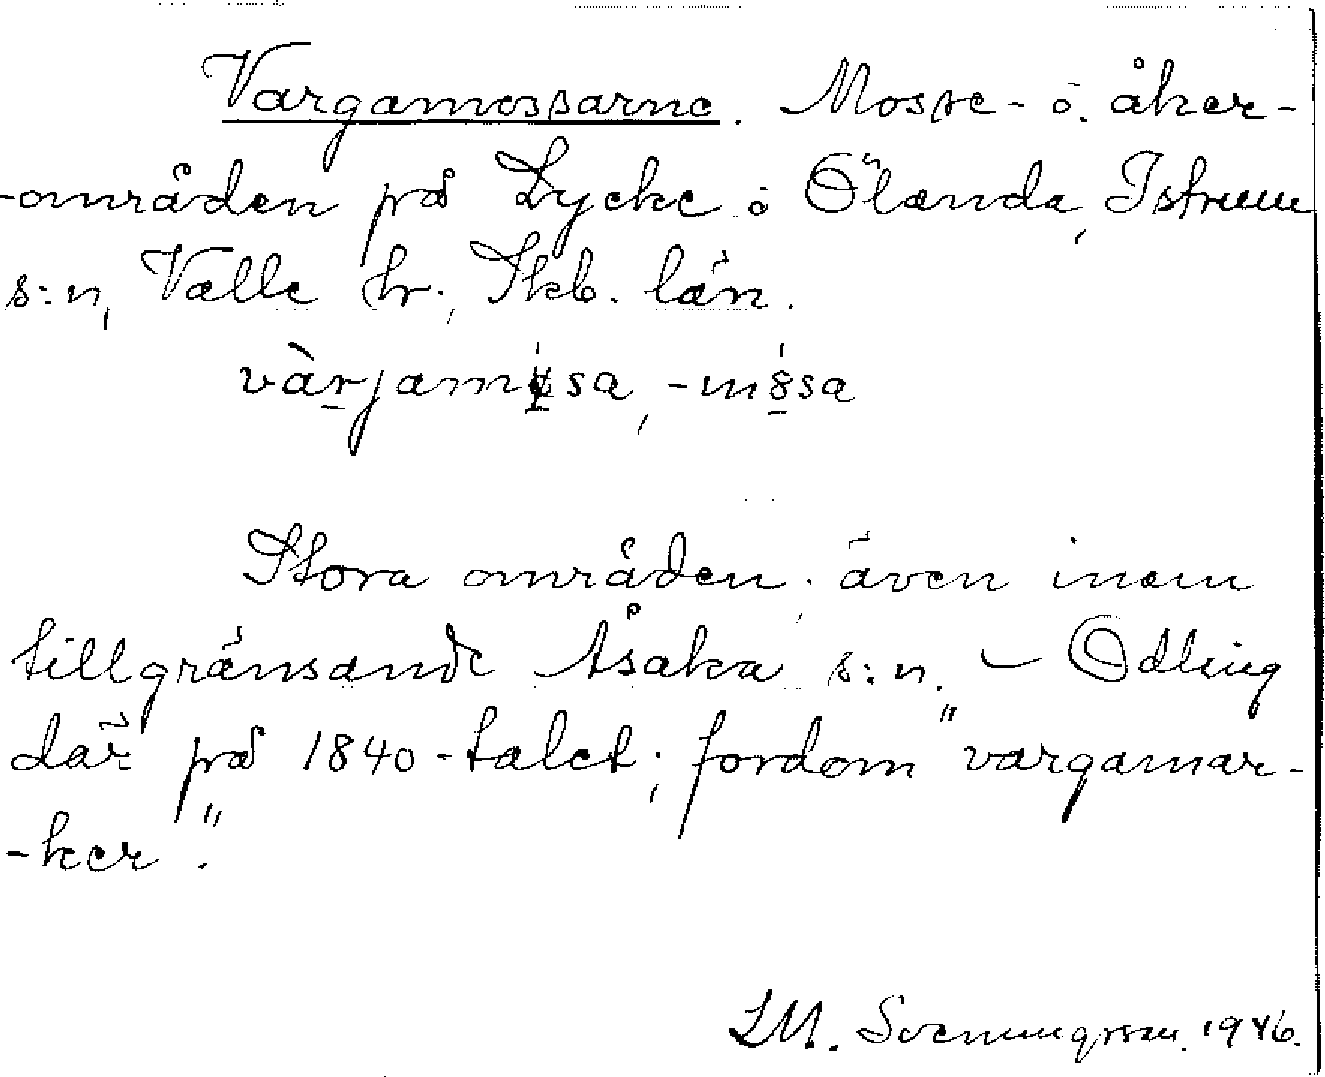 Vargamossarne. Mosse- o. åker-
-områden på Lycke o Ölanda, Istrum
s:n, Valle hr., Skb. län.
vàrjam sa, -m8sa
Stora områden; även inom
tillgränsande Åsaka s:n. – Odling
där på 1840-talet; fordom "vargamar-
-ker".
LM. Svenungsson. 1946.